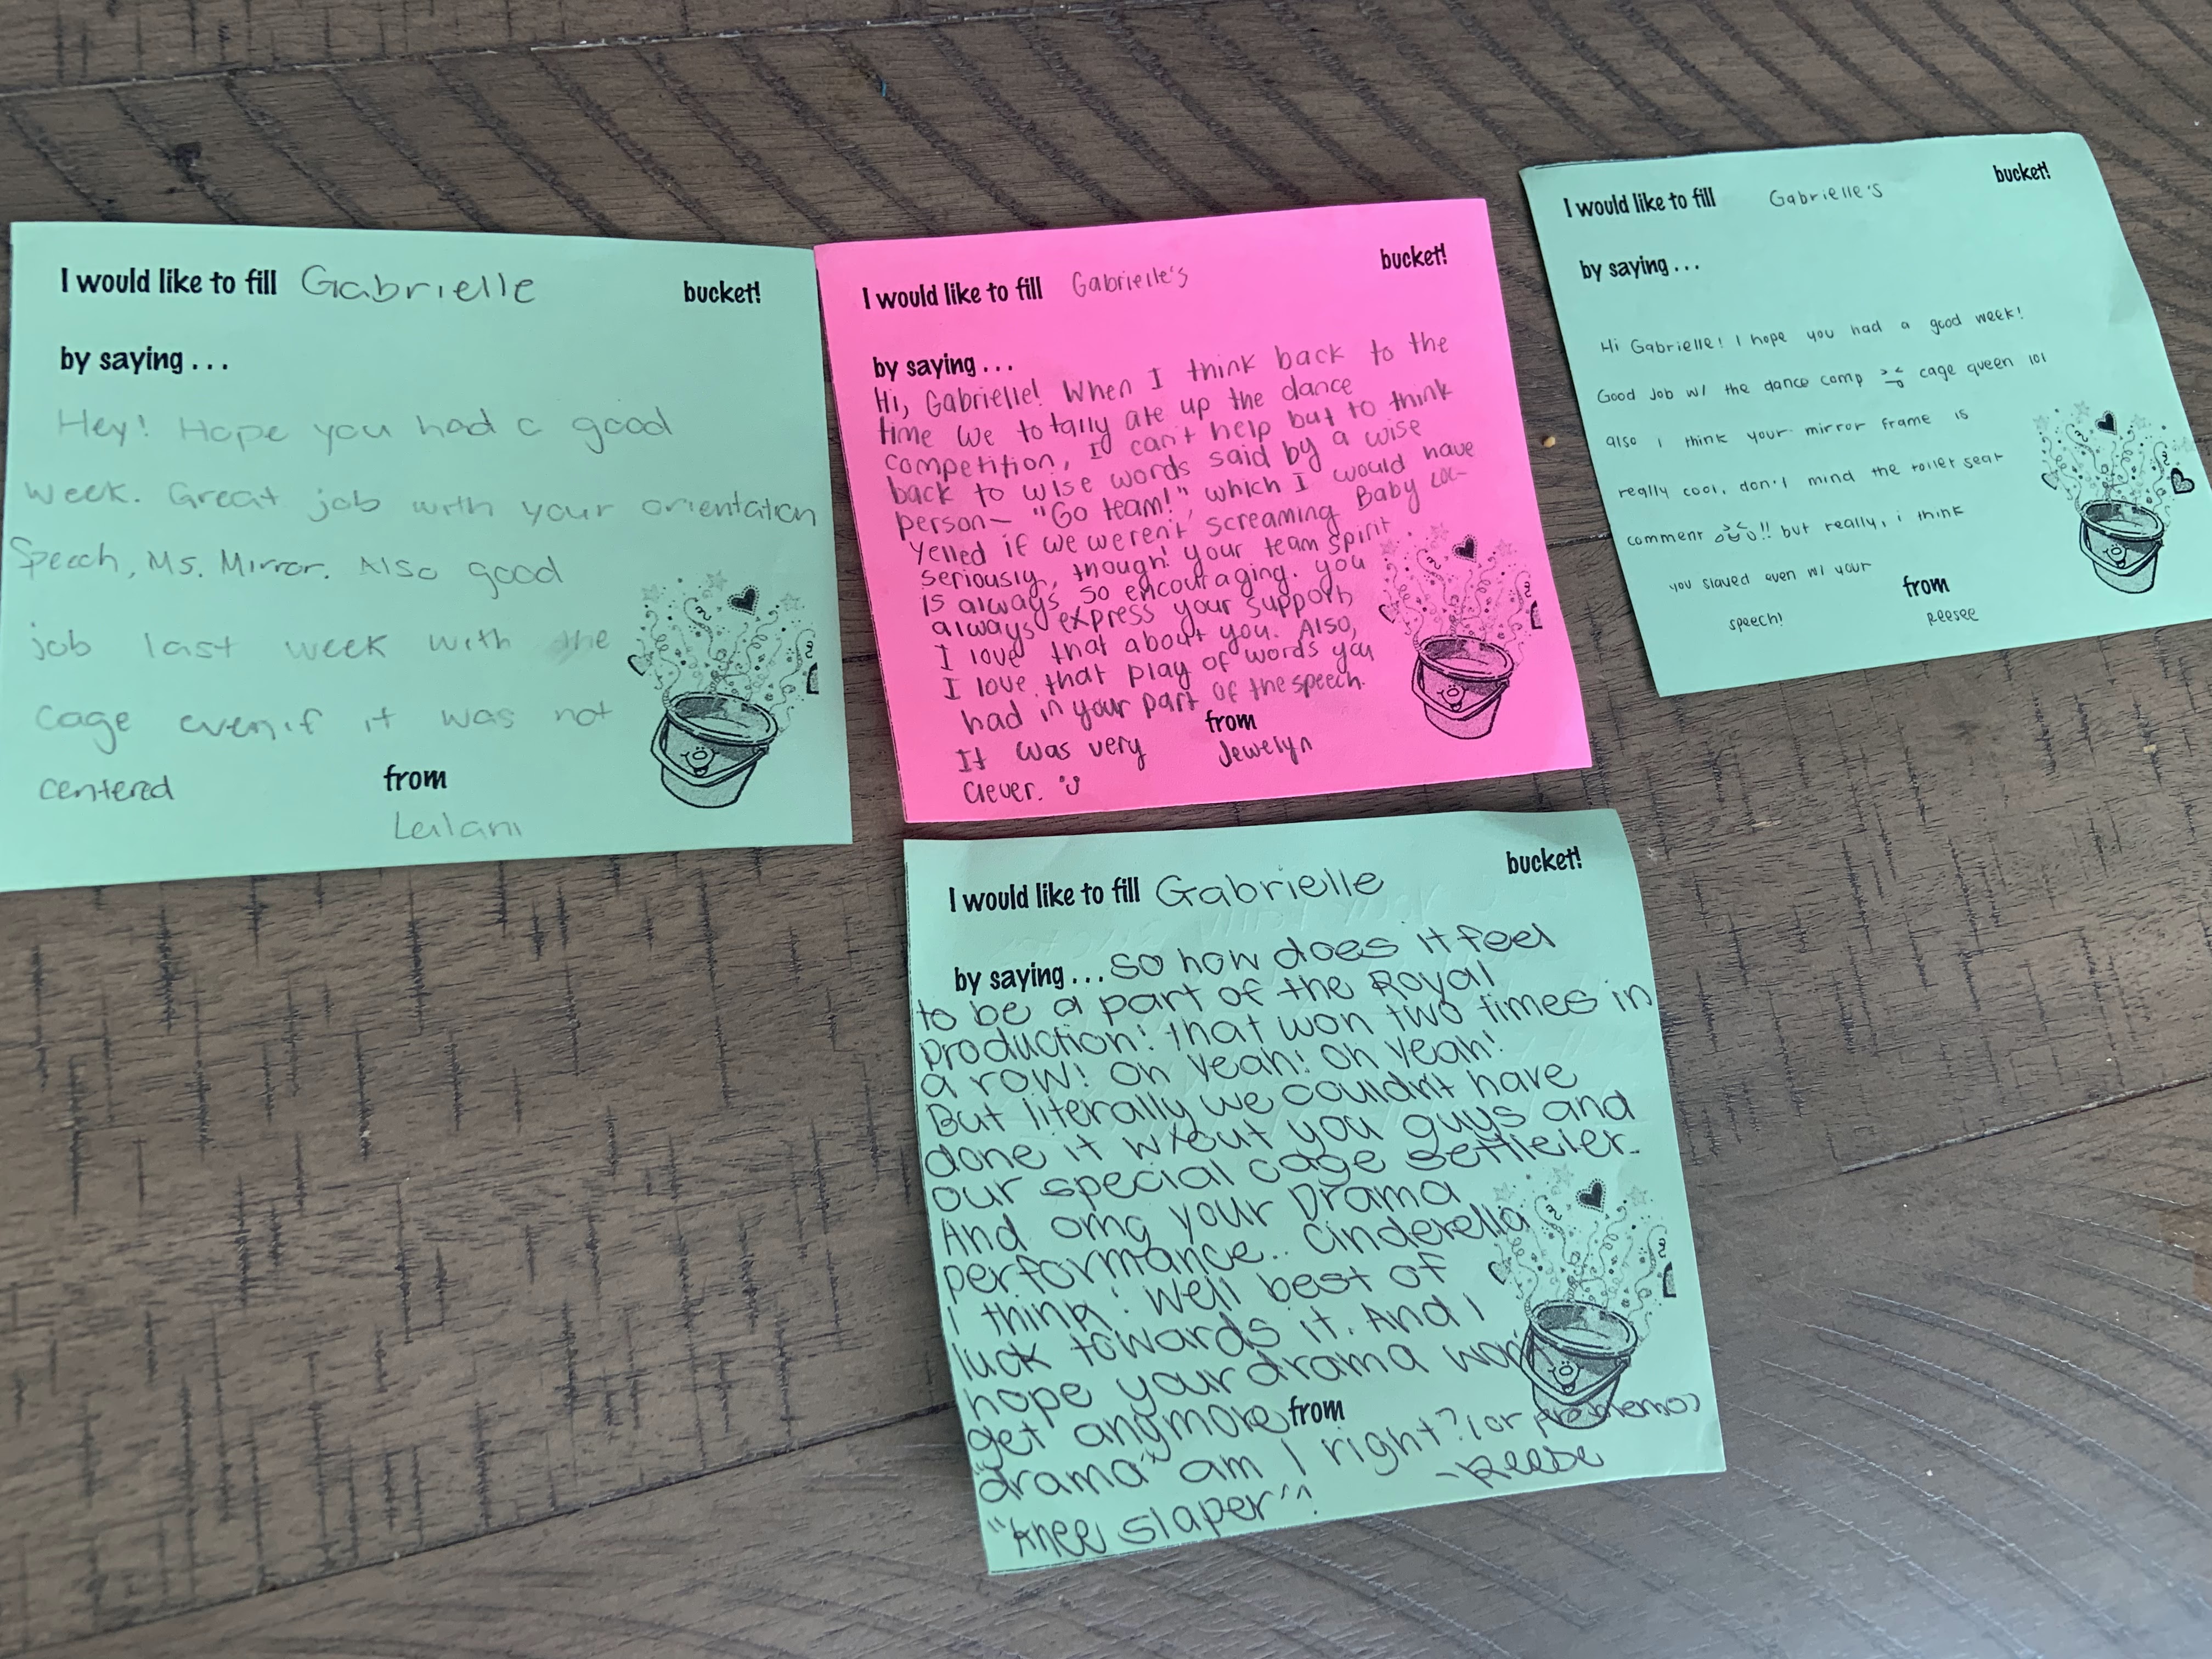 I would like to fill Gabrielle bucket!
by saying . . .
Hey! Hope you had a good
week. Great job with your orientation
Speech, Ms. Mirror. Also good
job last week with the
cage even if it was not
centered
from
Leilani
I would like to fill Gabrielle's bucket!
by saying . . .
Hi, Gabrielle! When I think back to the
time we totally ate up the dance
competition, I can't help but to think
back to wise words said by a wise
person— "Go team!", which I would have
yelled if we weren't screaming Baby LOL—
seriously, though! your team spirit
is always so encouraging. you
always express your support,
I love that about you. Also,
I love that play of words you
had in your part of the speech.
It was very
clever.
from
Jewelyn
I would like to fill Gabrielle's bucket!
by saying . . .
Hi Gabrielle! I hope you had a good week!
Good Job w/ the dance comp cage queen lol
also i think your mirror frame is
really cool, don't mind the toilet seat
comment !! but really, i think
you slayed even w/ your
speech!
from
Reesee
I would like to fill Gabrielle bucket!
by saying . . . so how does it feel
to be a part of the Royal
production! that won two times in
a row! Oh yeah! Oh yeah!
But literally we couldn't have
done it w/out you guys and
our special cage
And omg your Drama
performance.. Cinderella
I think! Well best of
luck towards it. And I
hope your drama won't
get anymore
"drama" am I right? (or
"knee slaper"^^!
from